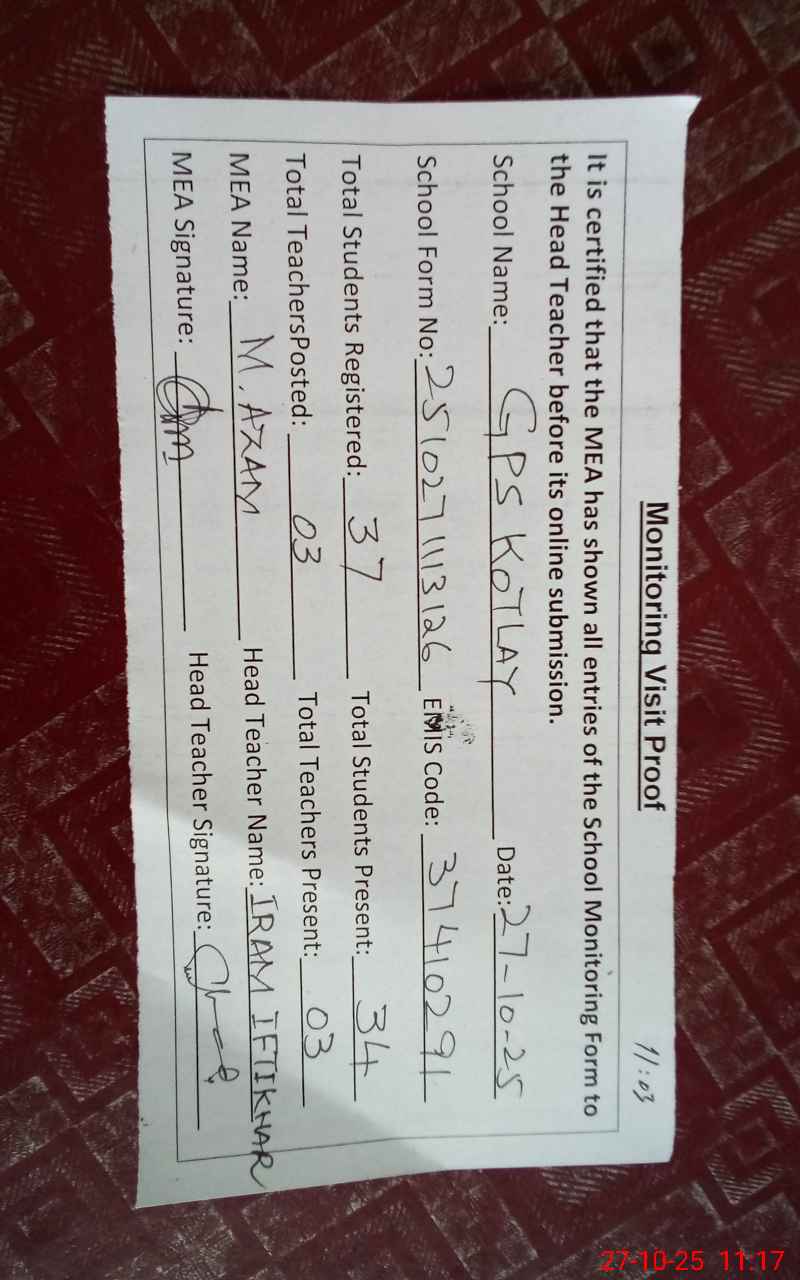 11:03
Monitoring Visit Proof
It is certified that the MEA has shown all entries of the School Monitoring Form to
the Head Teacher before its online submission.
School Name: GPS KOTLAY Date: 27-10-25
School Form No: 2510271113126 EMIS Code: 37410291
Total Students Registered: 37 Total Students Present: 34
Total TeachersPosted: 03 Total Teachers Present: 03
MEA Name: M. AZAM Head Teacher Name: IRAM IFTIKHAR
MEA Signature: Head Teacher Signature:
27-10-25 11:17